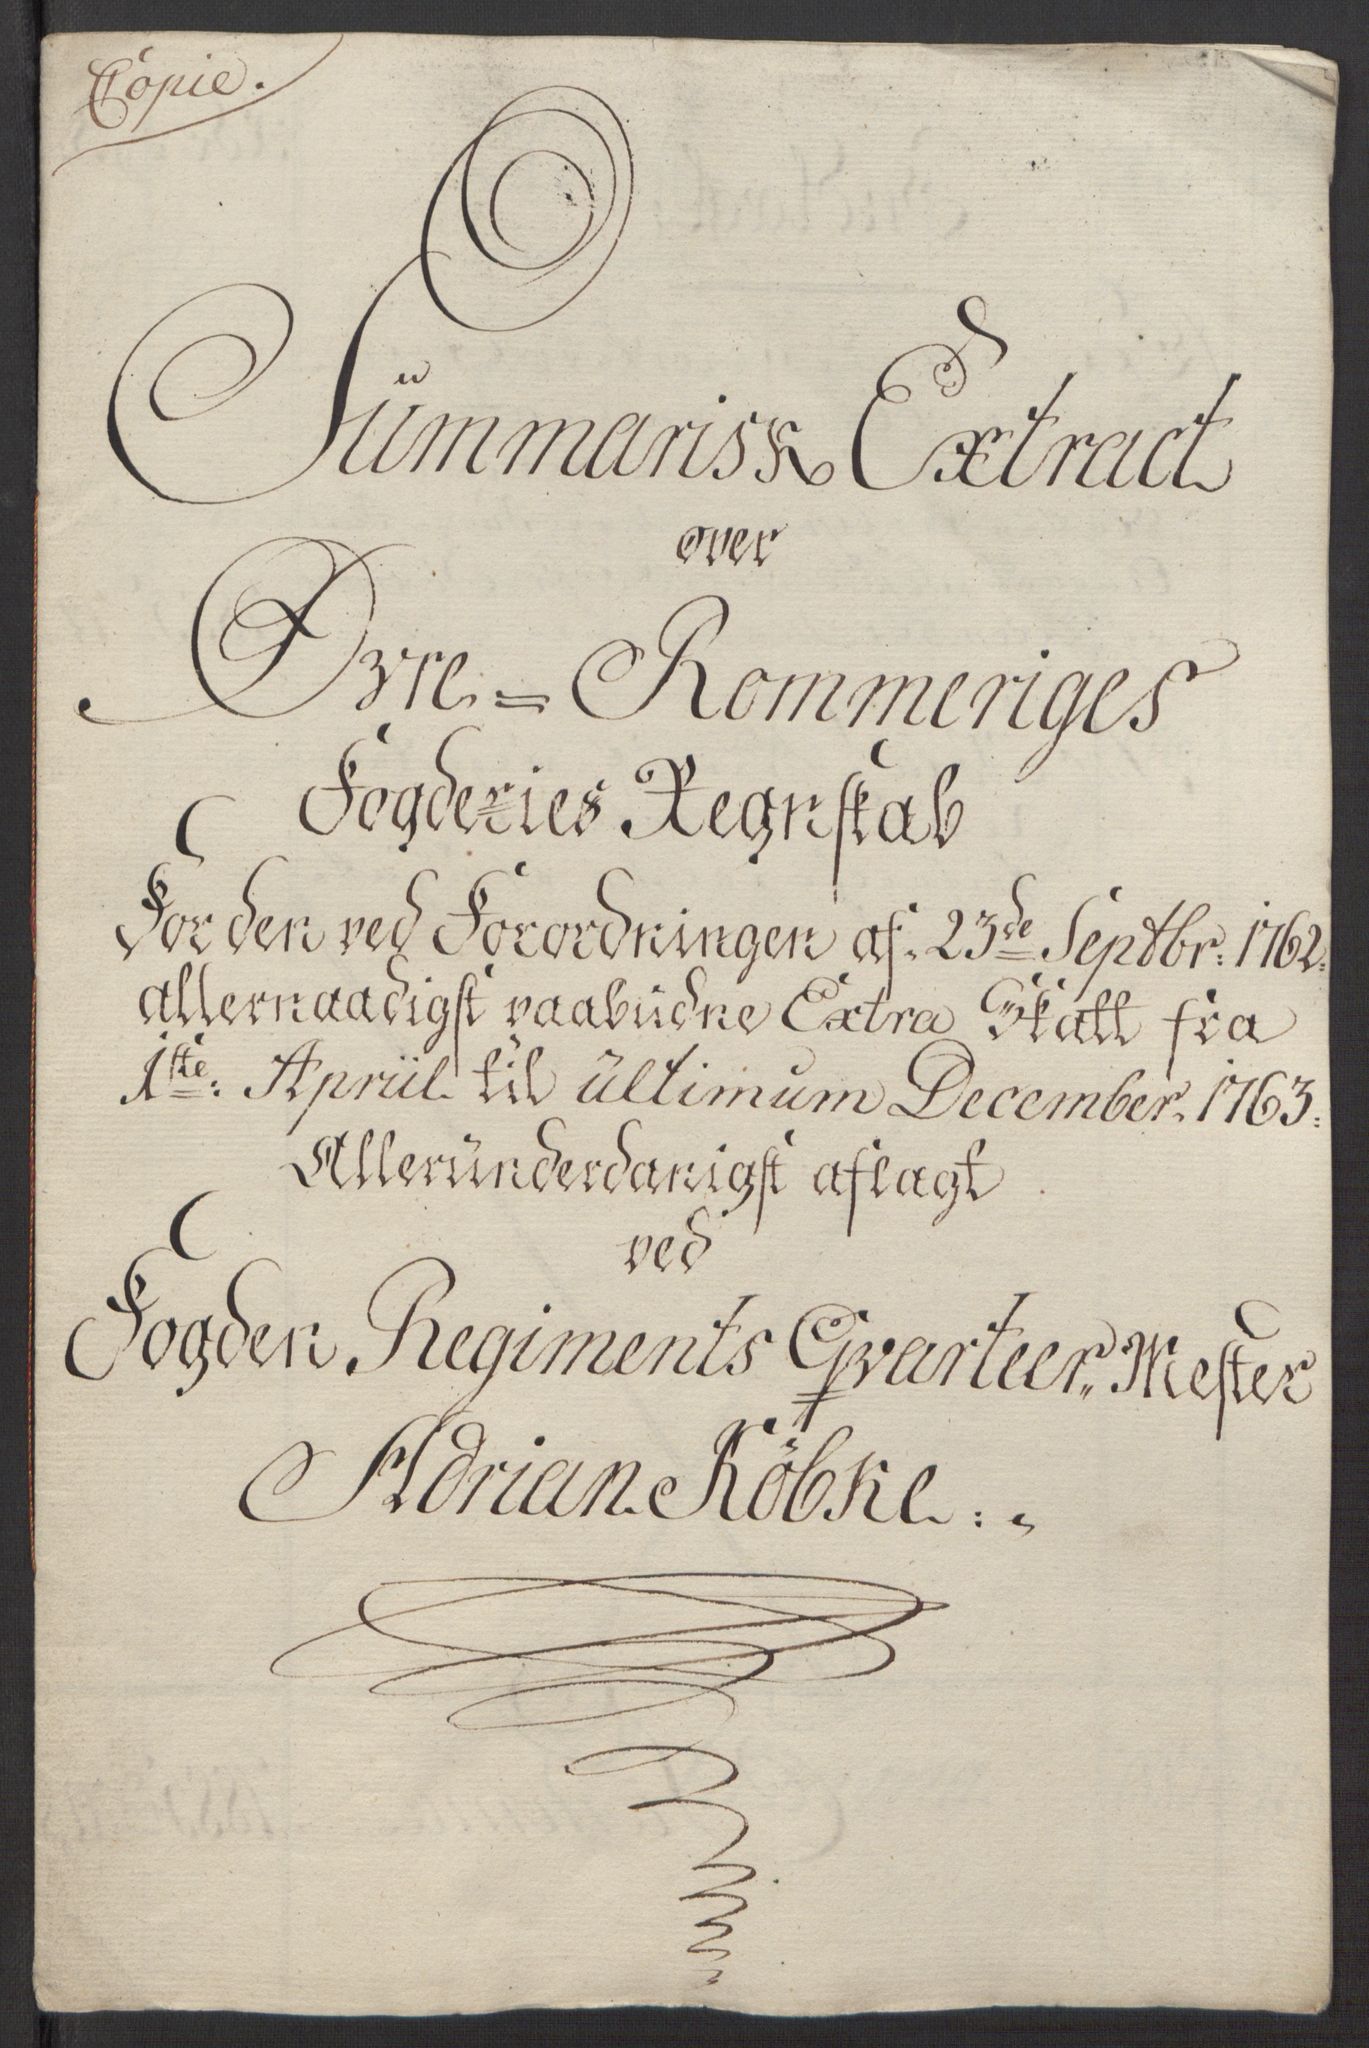 Copie.
Summarisk Extract
over
Øvre- Rommeriges
Fogderies Regnskab
For den ved Forordningen af 23de Septbr: 1762.
allernaadigst paabudne Extra Skatt fra
1ste: Apriil til ultimum December 1763:
Allerunderdanigst aflagt
ved
Fogden Regiments Qvarteer Mester
Adrian Köbke